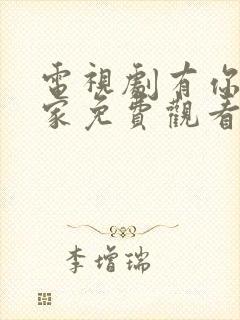 電視劇有你
家免費觀看
李增瑞